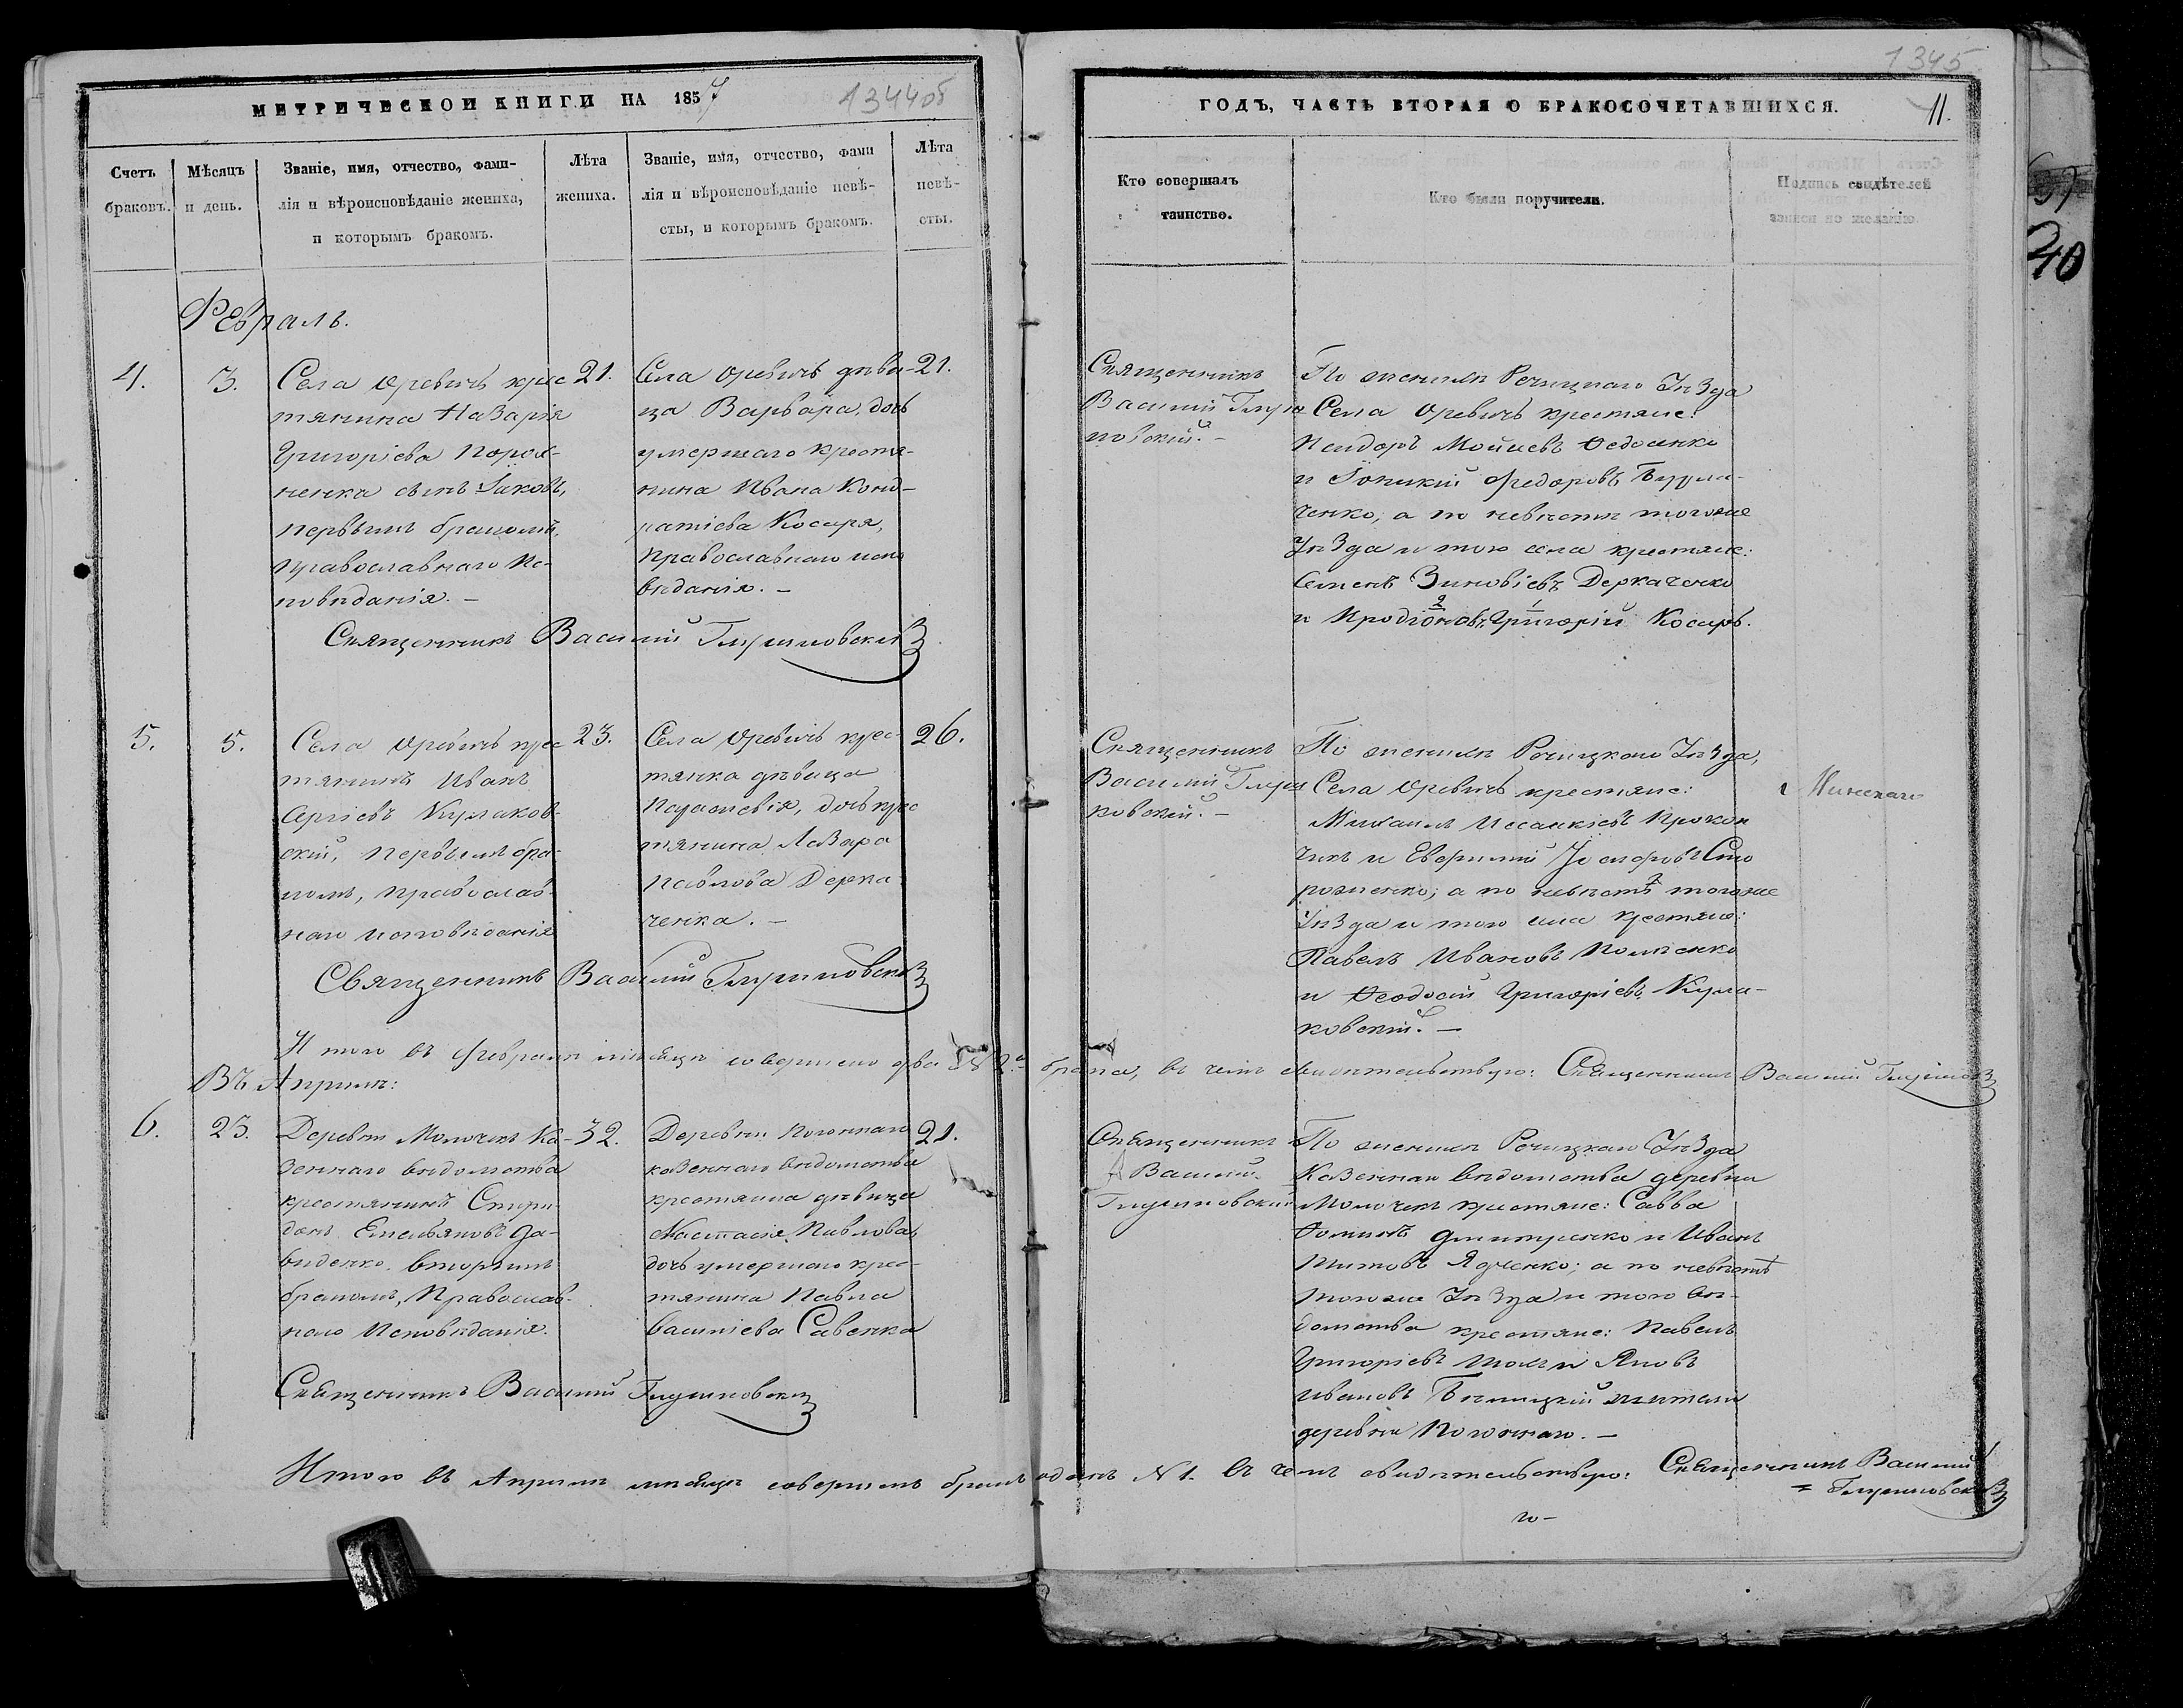 1344об
МЕТРИЧЕСКОЙ КНИГИ НА 1857
Счетъ браковъ.
Мѣсяцъ и день.
Званіе, имя, отчество, фами-
лія и вѣроисповѣданіе жениха,
и которымъ бракомъ.
Лѣта
жениха.
Званіе, имя, отчество, фами
лія и вѣроисповѣданіе невѣ-
сты, и которымъ бракомъ.
Лѣта
невѣ-
сты.
Февраль.
4.
3.
Села Оревичъ крес
тянина Назарія
Григоріева
ненка сынъ Іаковъ,
первымъ бракомъ,
православнаго Ис-
повѣданія. —
21.
Села Оревичъ дѣви-
ца Варвара, дочь
умершаго крестя-
нина Ивана Конд-
ратіева Косаря,
православнаго испо
вѣданія. —
21.
Священникъ Василій
5.
5.
Села Оревичъ крес
тянинъ Иванъ
Сергіевъ Кулаков-
скій, первымъ бра-
комъ, православ-
наго исповѣданія
23.
Села Оревичъ крес-
тянка дѣвица
Параскевія, дочь крес
тянина Лазара
Павлова Дерка
ченка. —
26.
Священникъ Василій
Итого въ Февралѣ мѣсяцѣ совершено два № 2. брака, въ чемъ свидѣтельствую: Священникъ Василій
Въ Априлѣ:
6.
23.
Деревни Молочекъ Ка-
зеннаго вѣдомства
крестянинъ Спири
донъ Емельяновъ Да-
виденко. вторымъ
бракомъ, Православ-
наго Исповѣданія.
32.
Деревни Погоннаго
казеннаго вѣдомства
крестянка дѣвица
Настасія Павлова,
дочь умершаго крес-
тянина Павла
Василіева Савенка
21.
Священникъ Василій
Итого въ Априлѣ мѣсяцѣ совершенъ бракъ одинъ № 1. въ чемъ свидѣтельствую: Священникъ Василій
1345
ГОДЪ, ЧАСТЬ ВТОРАЯ О БРАКОСОЧЕТАВШИХСЯ.
11.
Кто совершалъ
таинство.
Кто были поручители.
Подпись свидѣтелей
записи по желанію
Священникъ
Василій
По женихѣ Речицкаго Уѣзда
Села Оревичъ крестяне:
Ѳедосенко
и Іоникій Федоровъ
ченко, а по невѣстѣ тогоже
Уѣзда и того села крестяне:
Семенъ Зиновіевъ Деркаченко
и Иродіоновъ Григорій Косаръ.
Священникъ
Василій
По женихѣ Речицкаго Уѣзда,
Села Оревичъ крестяне:
Михаилъ Исаакіевъ Прокоп
чикъ и
роженко; а по невѣстѣ тогоже
Уѣзда и того села крестяне:
Павелъ Ивановъ
и Ѳеодосій Григоріевъ Кула-
ковскій. —
Минскаго
Священникъ
Василій
По женихѣ Речицкаго Уѣзда
Казеннаго вѣдомства деревни
Молочекъ крестяне: Савва
Ѳоминъ Дмитренко и Иванъ
Титовъ Ядченко; а по невѣстѣ
тогоже Уѣзда и того вѣ-
домства крестяне: Павелъ
Григоріевъ и Яковъ
Ивановъ жители
деревни Погоннаго. —
40